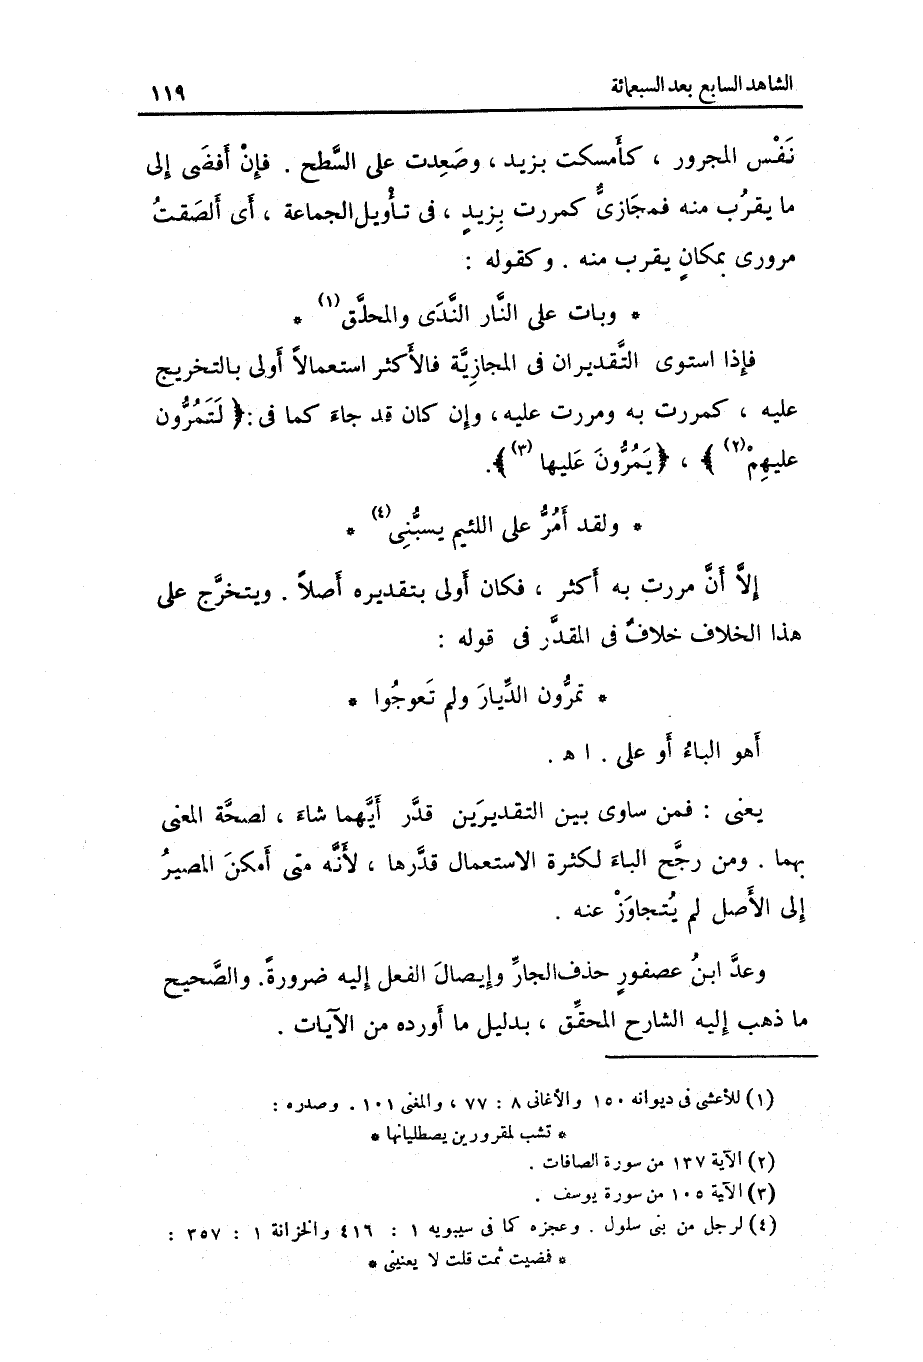 الشاهد السابع بعد السبعمائة ١١٩
نَفْس المجرور ، كأَمسكت بزيد ، وصَعِدت على السَّطح . فإنْ أَفضَى إلى
ما يقرُب منه فمجَازىٌّ كمررت بِزيدٍ ، فى تأْويل الجماعة ، أَى أَلصَقتُ
مرورى بمكانٍ يقرب منه . وكقوله :
* وبات على النَّار النَّدَى والمحلَّق (١) *
فإذا استوى التَّقديران فى المجازيَّة فالأَكثر استعمالاً أَولى بالتخريج
عليه ، كمررت به ومررت عليه ، وإن كان قد جاءَ كما فى : ﴿ لَتَمُرُّون
عليهِمْ (٢) ﴾ ، ﴿ يَمُرُّونَ عَليها (٣) ﴾ .
* ولقد أَمُرُّ على اللئيم يسبُّنِى (٤) *
إلاَّ أَنَّ مررت به أَكثر ، فكان أَولى بتقديره أَصلاً . ويتخرَّج على
هذا الخلاف خلافٌ فى المقدَّر فى قوله :
* تمرُّون الدِّيارَ ولم تَعوجُوا *
أَهو الباءُ أَو على . ا ه .
يعنى : فمن ساوى بين التقديرَين قدَّر أَيَّهما شاءَ ، لصحَّة المعنى
بهما . ومن رجَّح الباءَ لكثرة الاستعمال قدَّرها ، لأَنَّه متى أَمكنَ المصيرُ
إلى الأَصل لم يُتجاوَزْ عنه .
وعدَّ ابنُ عصفورٍ حذف الجارِّ وإيصالَ الفعل إليه ضرورةً. والصَّحيح
ما ذهب إليه الشارح المحقِّق ، بدليل ما أَورده من الآيات .
(١) للأعشى فى ديوانه ١٥٠ والأغانى ٨ : ٧٧ ، والمغنى ١٠١ . وصدره :
* تشب لمقرورين يصطليانها *
(٢) الآية ١٣٧ من سورة الصافات .
(٣) الآية ١٠٥ من سورة يوسف .
(٤) لرجل من بنى سلول . وعجزه كما فى سيبويه ١ : ٤١٦ والخزانة ١ : ٣٥٧ :
* فمضيت ثمت قلت لا يعنينى *